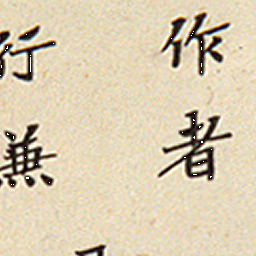 作者
行兼